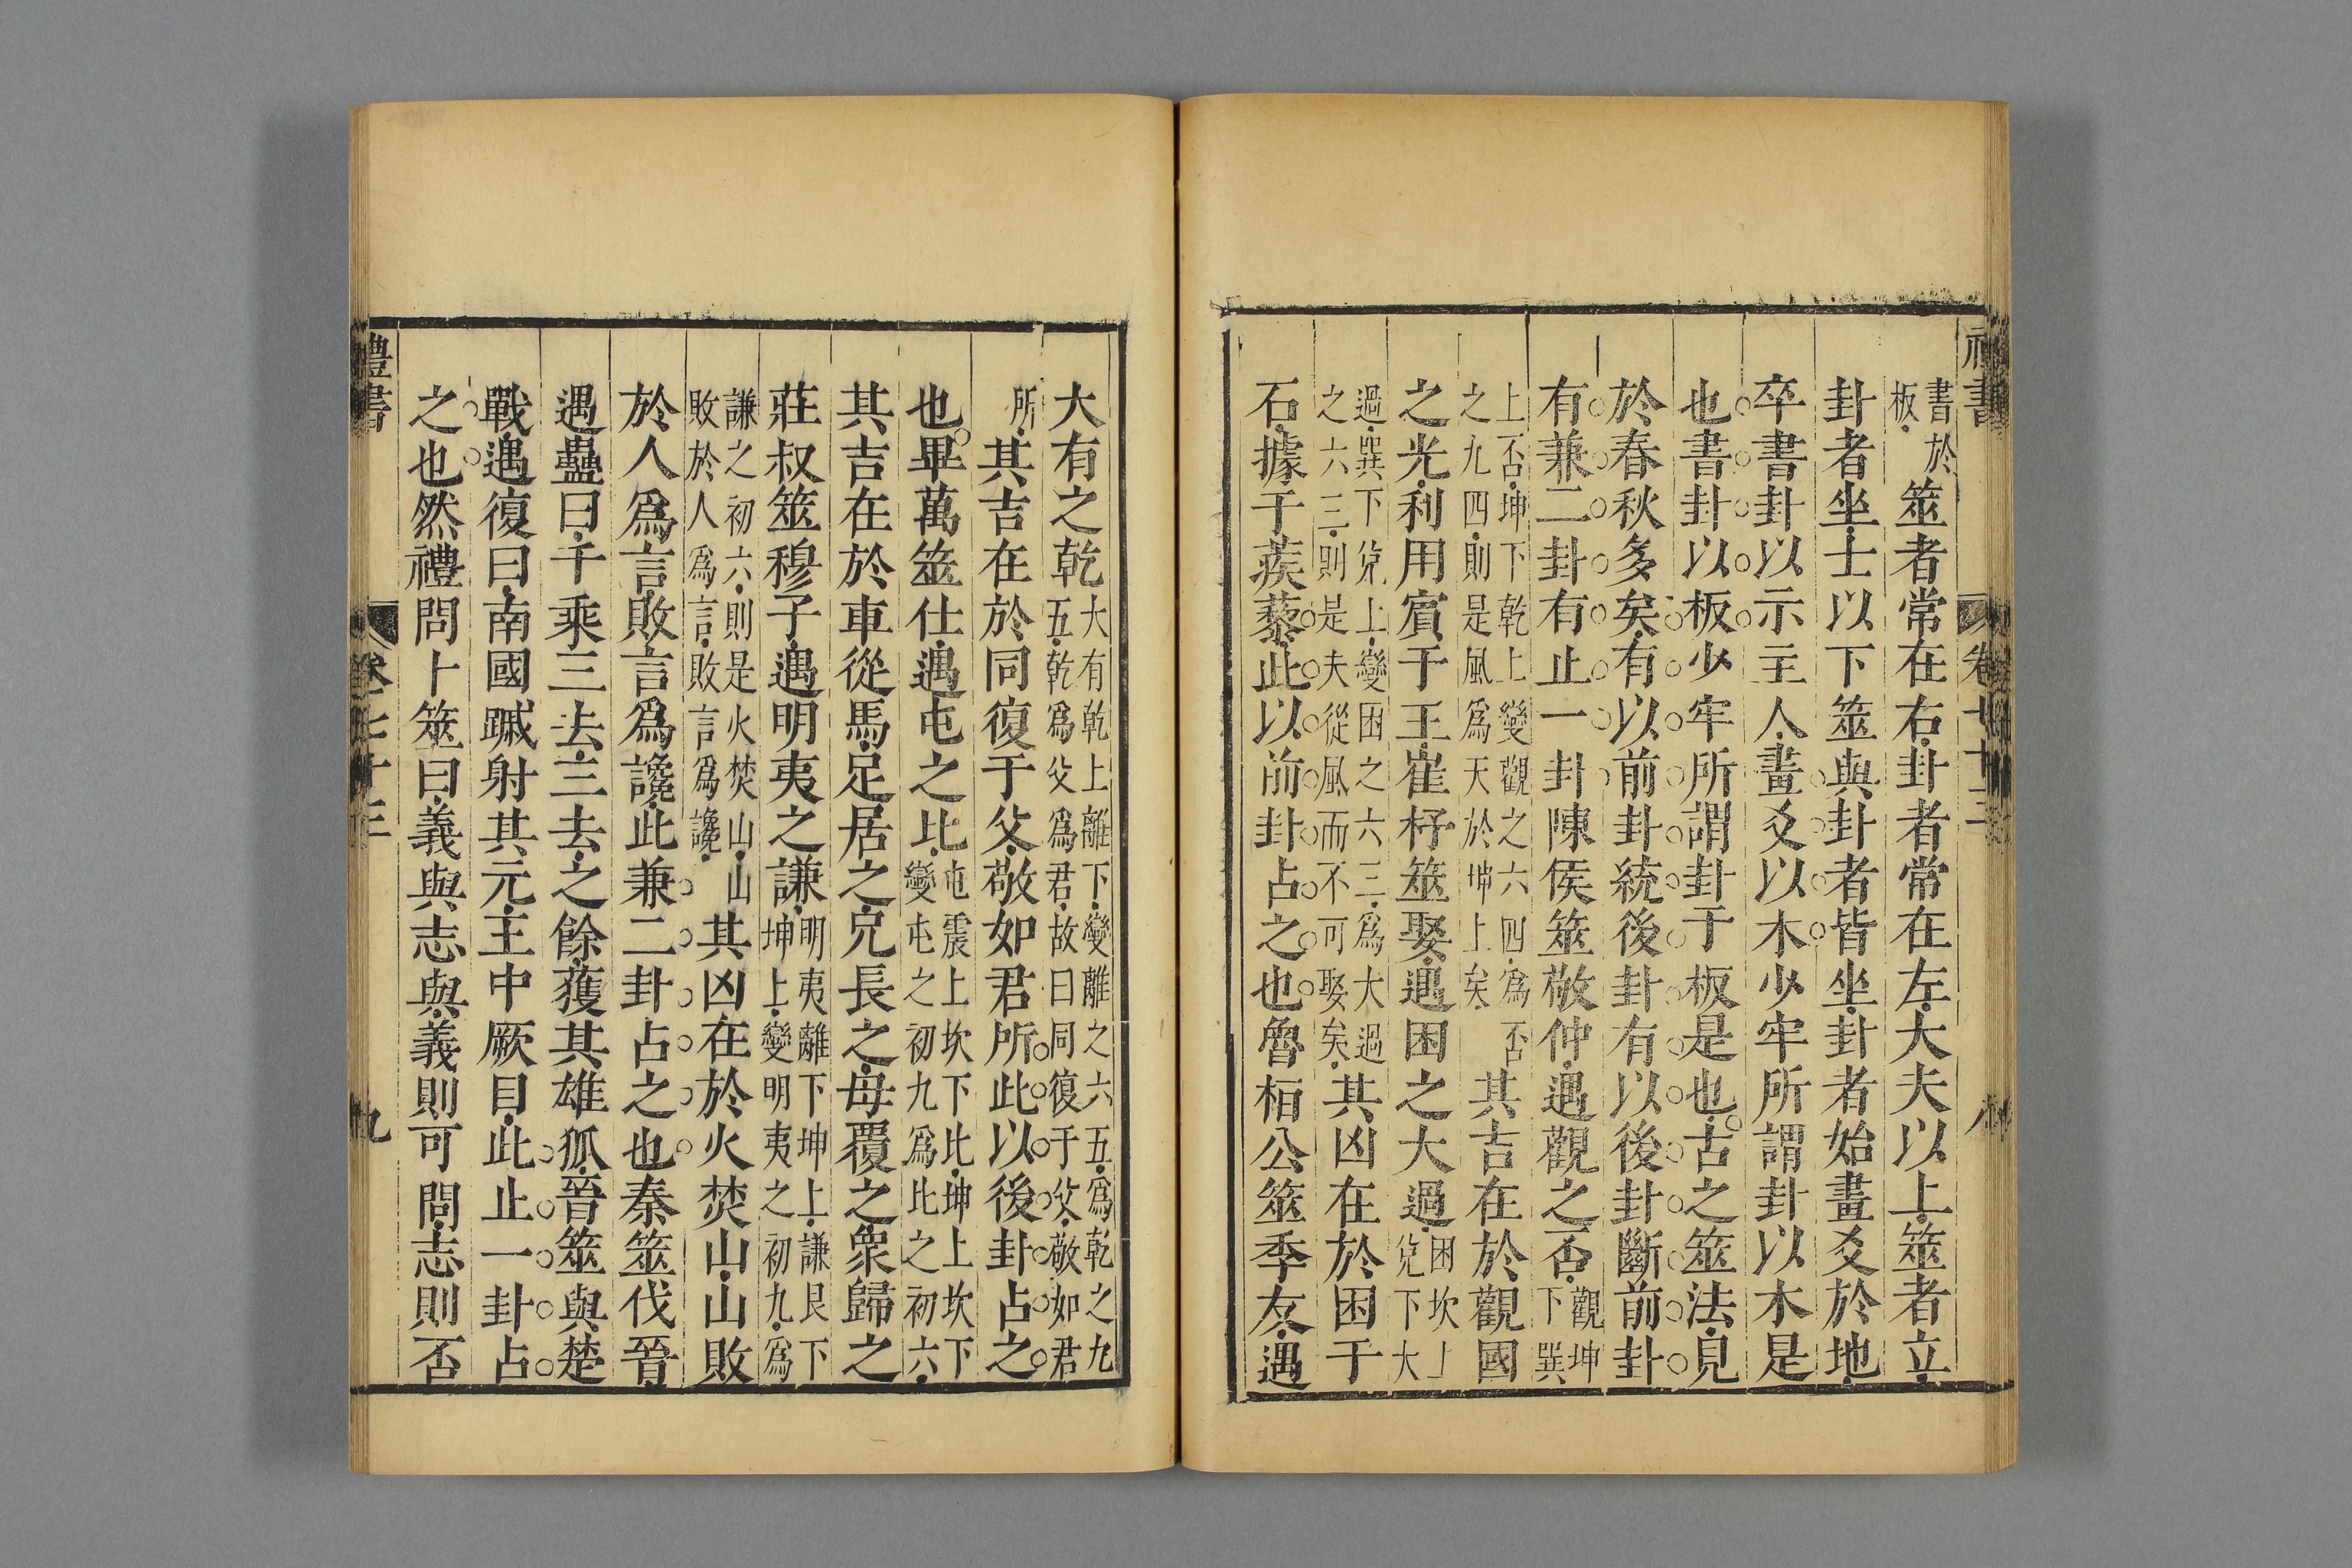 禮書 卷七十三 八
書於板筮者常在右卦者常在左大夫以上筮者立
卦者坐士以下筮與卦者皆坐卦者始畫爻於地
卒書卦以示主人畫爻以木少牢所謂卦以木是
也書卦以板少牢所謂卦于板是也古之筮法見
於春秋多矣有以前卦統後卦有以後卦斷前卦
有兼二卦有止一卦陳侯筮敬仲遇觀之否觀坤下巽
上否坤下乾上變觀之六四爲否之九四則是風爲天於坤上矣其吉在於觀國
之光利用賓于王崔杼筮娶遇困之大過困坎上兌下大
過巽下兌上變困之六三爲大過之六三則是夫從風而不可娶矣其凶在於困于
石據于蒺藜此以前卦占之也魯桓公筮季友遇
大有之乾大有乾上離下變離之六五爲乾之九五乾爲父爲君故曰同復于父敬如君
所其吉在於同復于父敬如君所此以後卦占之
也畢萬筮仕遇屯之比屯震上坎下比坤上坎下變屯之初九爲比之初六
其吉在於車從馬足居之兄長之母覆之衆歸之
莊叔筮穆子遇明夷之謙明夷離下坤上謙艮下坤上變明夷之初九爲
謙之初六則是火焚山山敗於人爲言敗言爲讒其凶在於火焚山山敗
於人爲言敗言爲讒此兼二卦占之也秦筮伐晉
遇蠱曰千乘三去三去之餘獲其雄狐晉筮與楚
戰遇復曰南國蹙射其元王中厥目此止一卦占
之也然禮問卜筮曰義與志與義則可問志則否
禮書 卷七十三 九